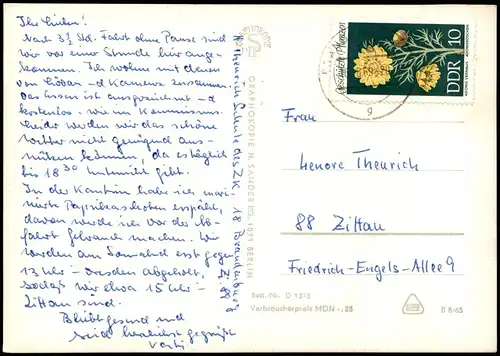 Ihr Lieben!
Nach 3½ Std. Fahrt ohne Pause sind
wir vor einer Stunde hier ange-
kommen. Ich wohne mit denen
von Löbau - d Kamenz zusammen
das Essen ist ausgezeichnet - d
kostenlos.
leider werden wir das schöne
Wetter nicht genügend aus-
nützen können, da es täglich
bis 18³⁰ Unterricht gibt.
In der Kantine habe ich mari-
nierte Paprikaschoten erspäht,
davon werde ich vor der
fahrt Gebrauch machen. Wir
werden am Sonnabend erst gegen
13 Uhr - Dresden abgeholt,
sodaß wir etwa 15 Uhr -
Zittau sind.
Bleibt gesund und
seid herzlichst gegrüßt
Schule des ZK. 18 Brandenburg
GRAPHOKOPIE H. SANDER KG, 1071 BERLIN
Geschützte Pflanzen
DDR 10
g
Frau
Lenore Theurich
88 Zittau
Friedrich-Engels-Allee 9
Best.-Nr. D 1378
Verbraucherpreis MDN -,25
B 8/65